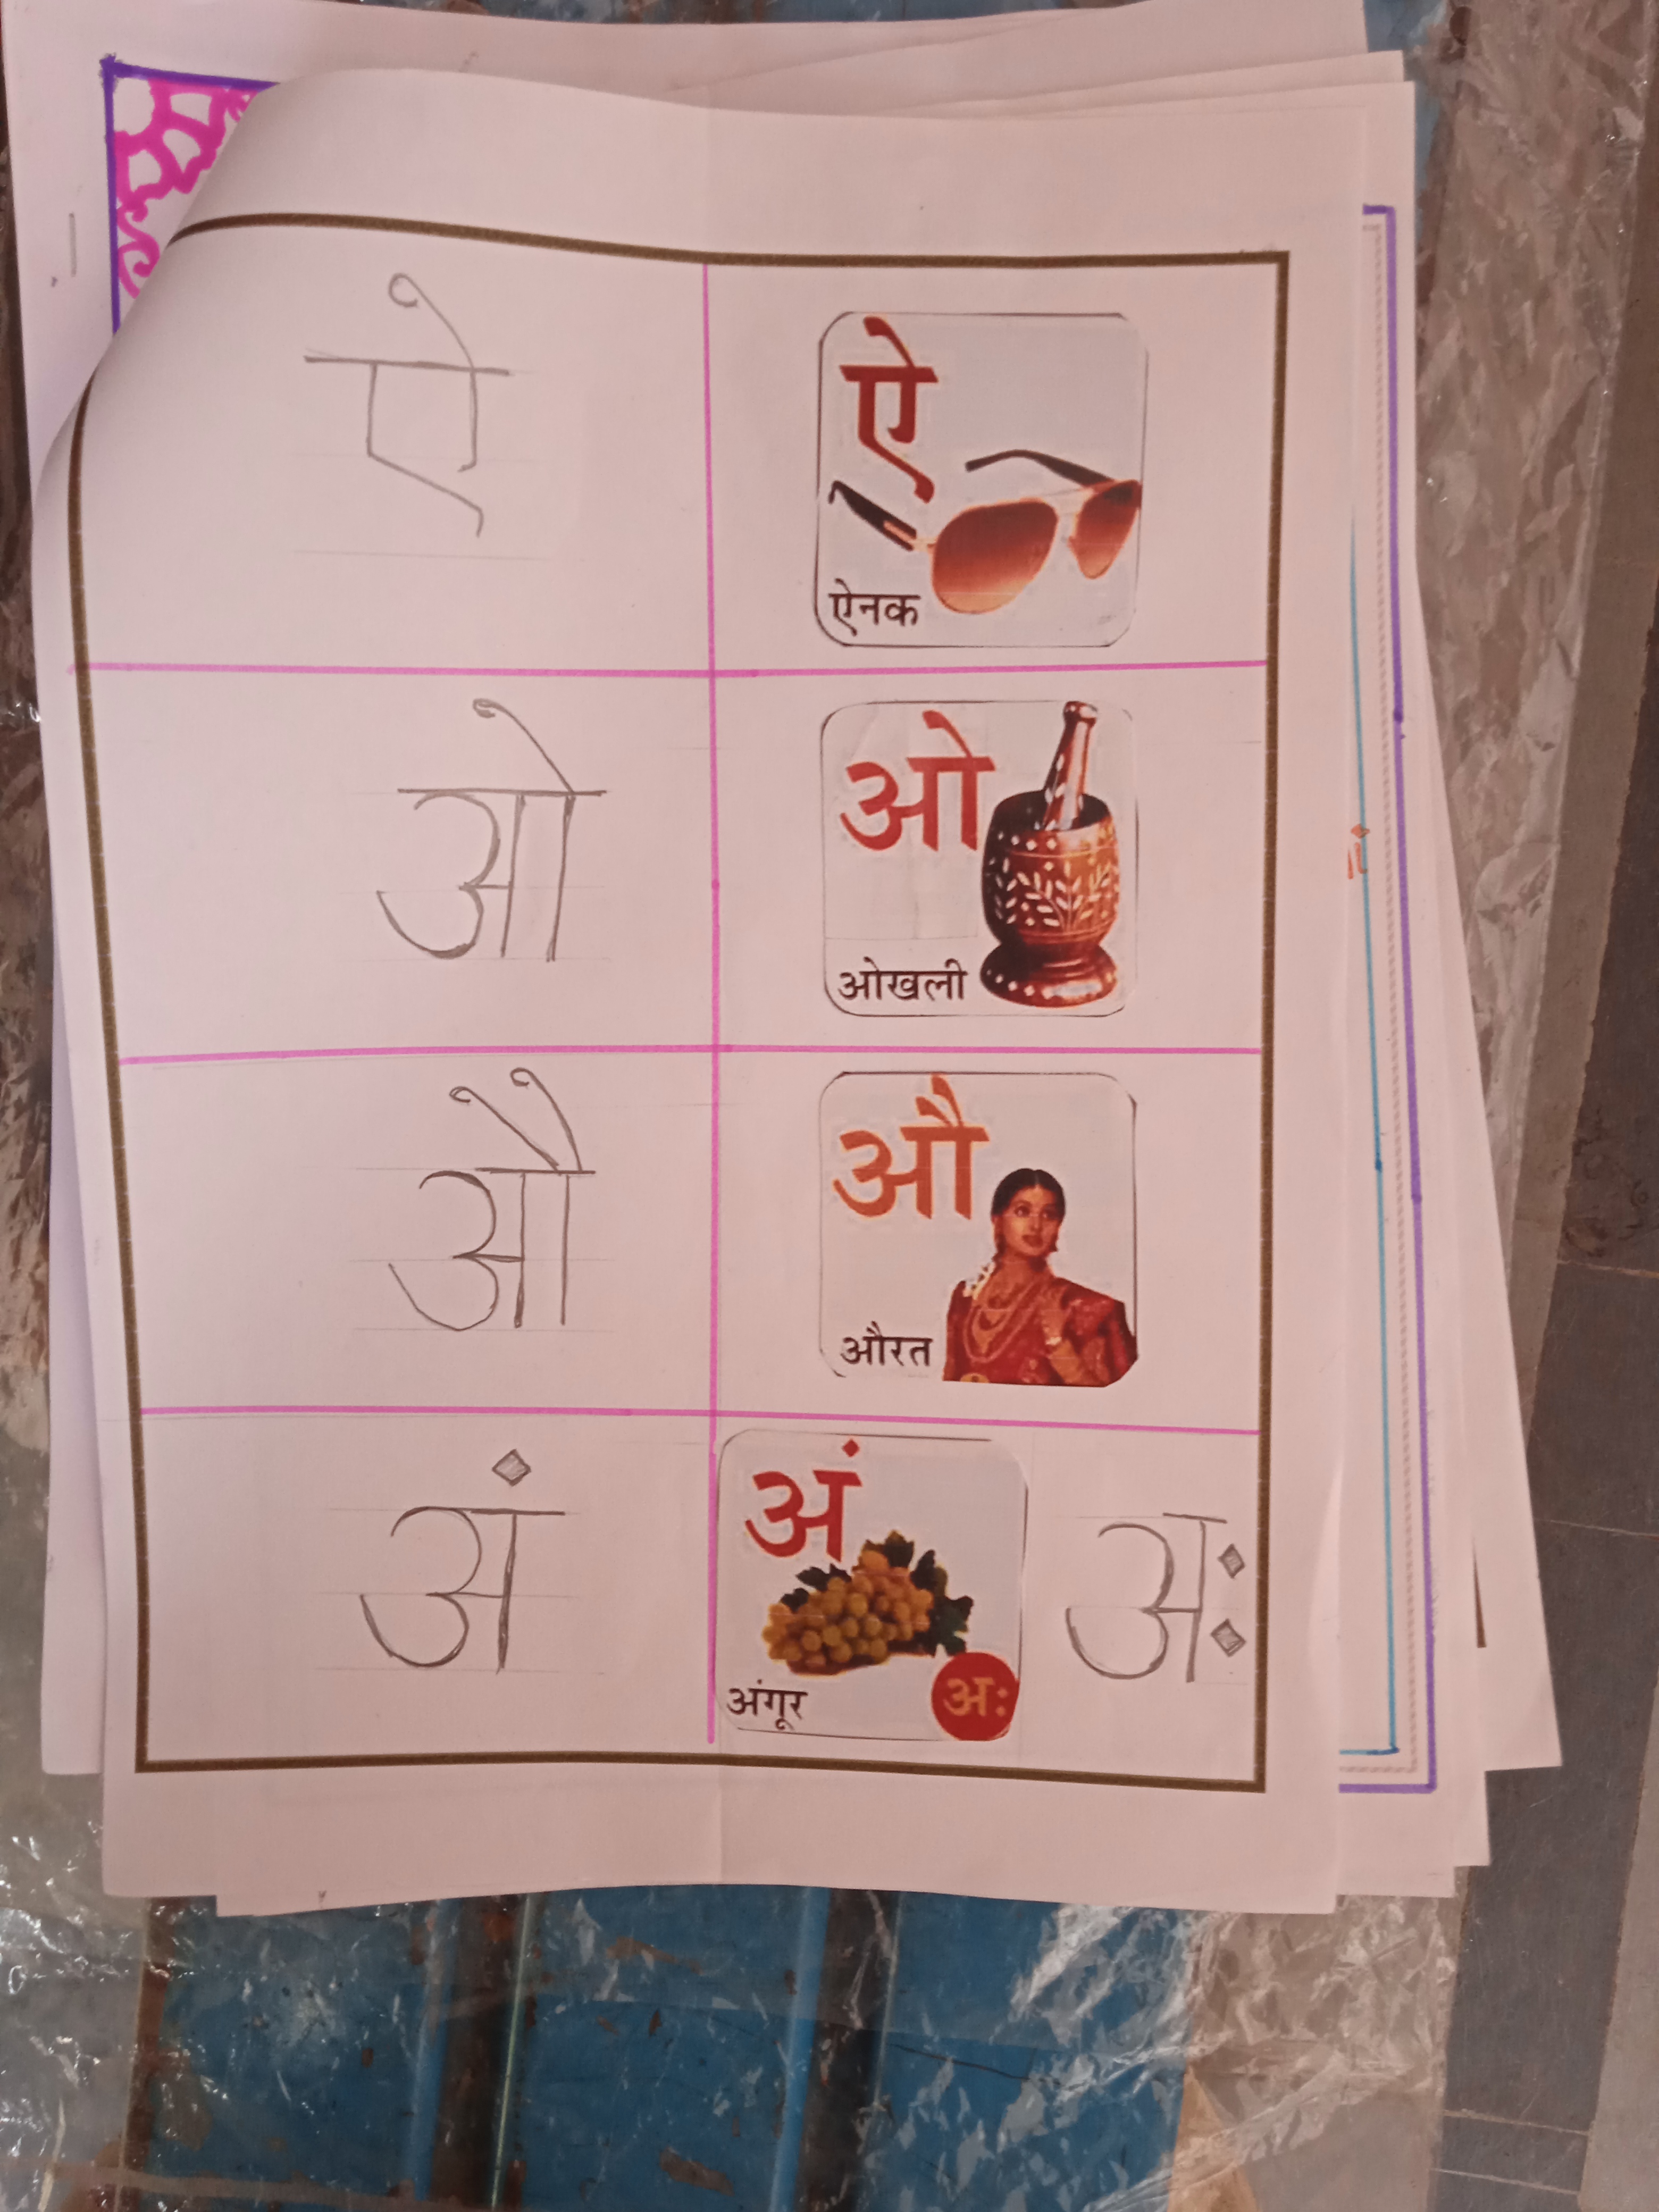 ऐ
ऐ
ऐनक
ओ
ओ
ओखली
औ
औ
औरत
अं
अं
अंगूर
अः
अः